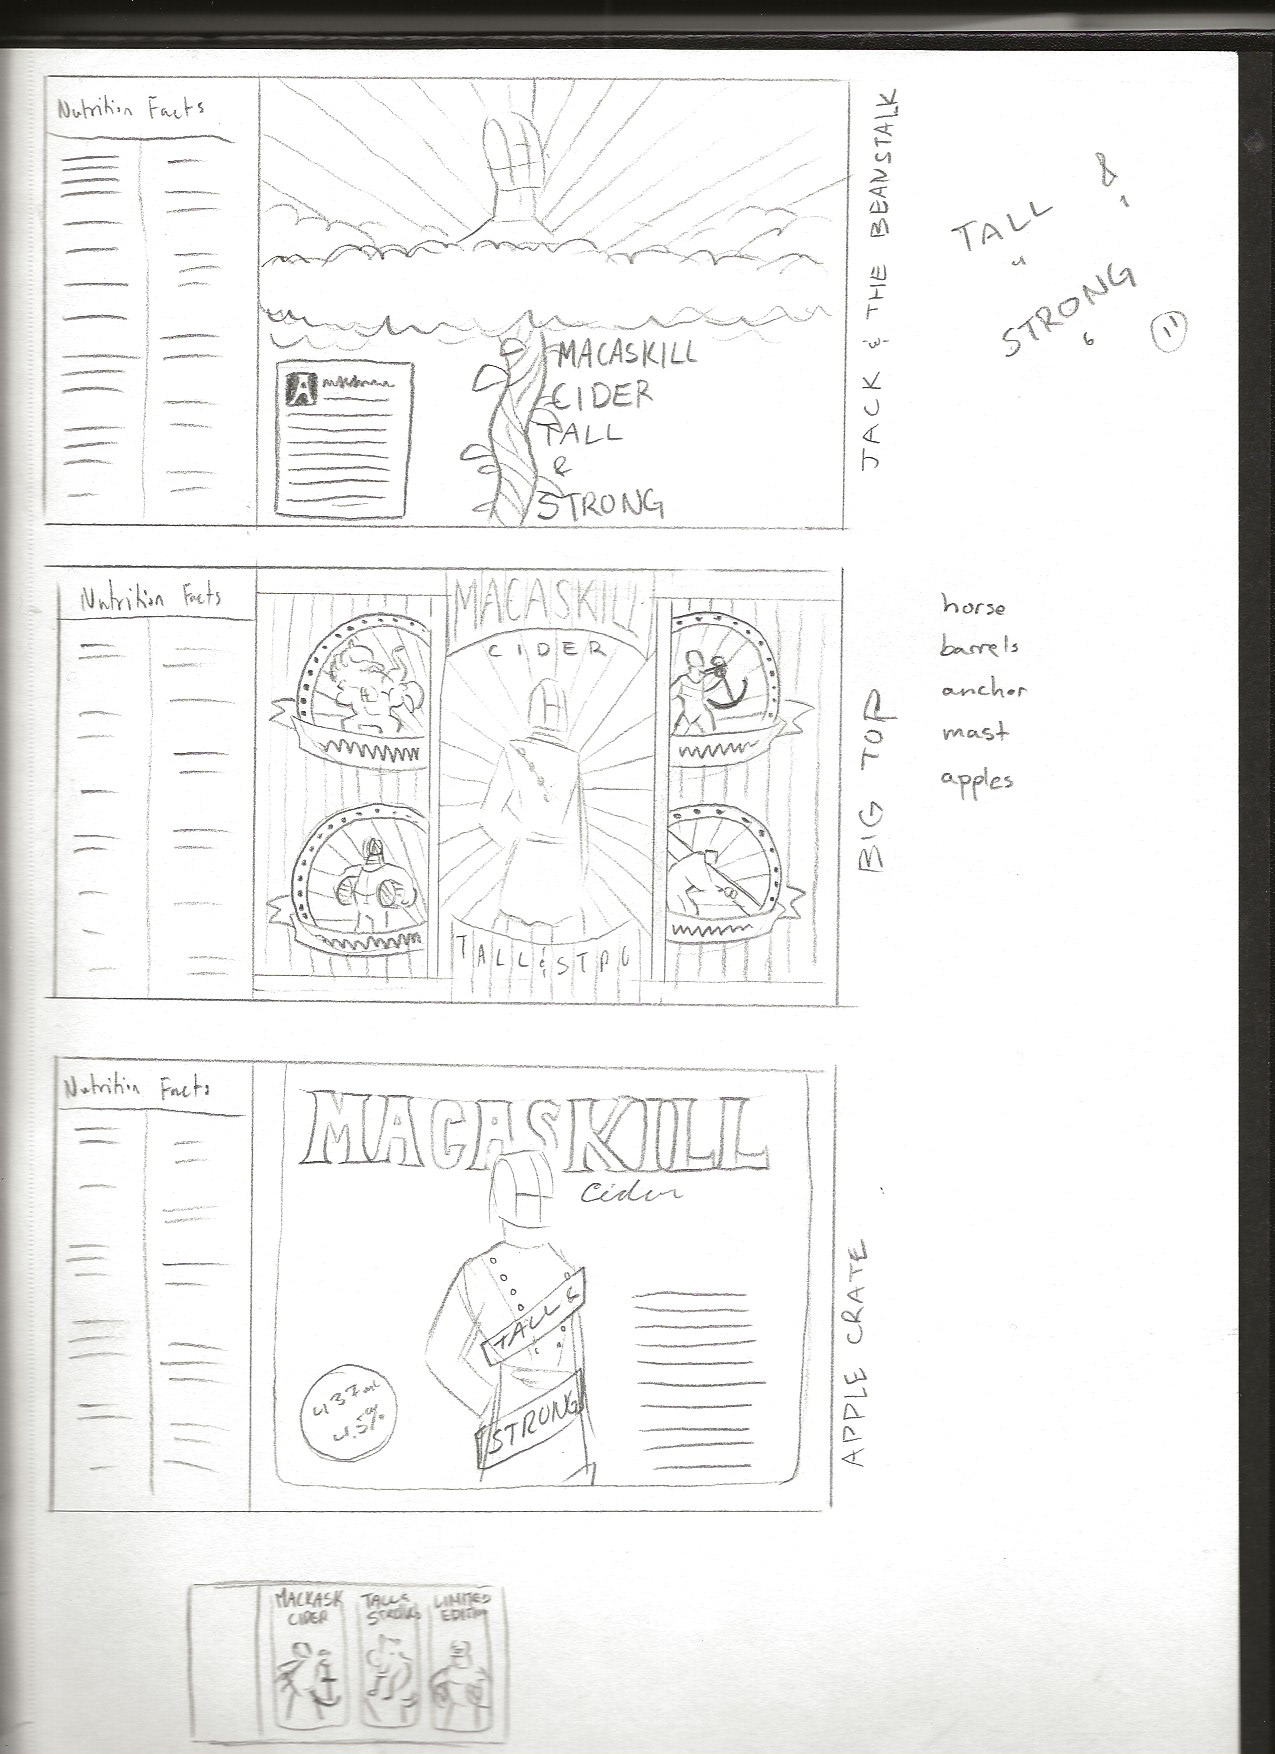 Nutrition Facts
MACASKILL
CIDER
TALL
&
STRONG
JACK & THE BEANSTALK
TALL &
4 1
STRONG
6 11
Nutrition Facts
MACASKILL
CIDER
TALL & STRO
BIG TOP
horse
barrels
anchor
mast
apples
Nutrition Facts
MACASKILL
Cider
TALL &
STRONG
437ml
4.5%
APPLE CRATE
MACKASK
CIDER
TALL &
STRONG
LIMITED
EDITION